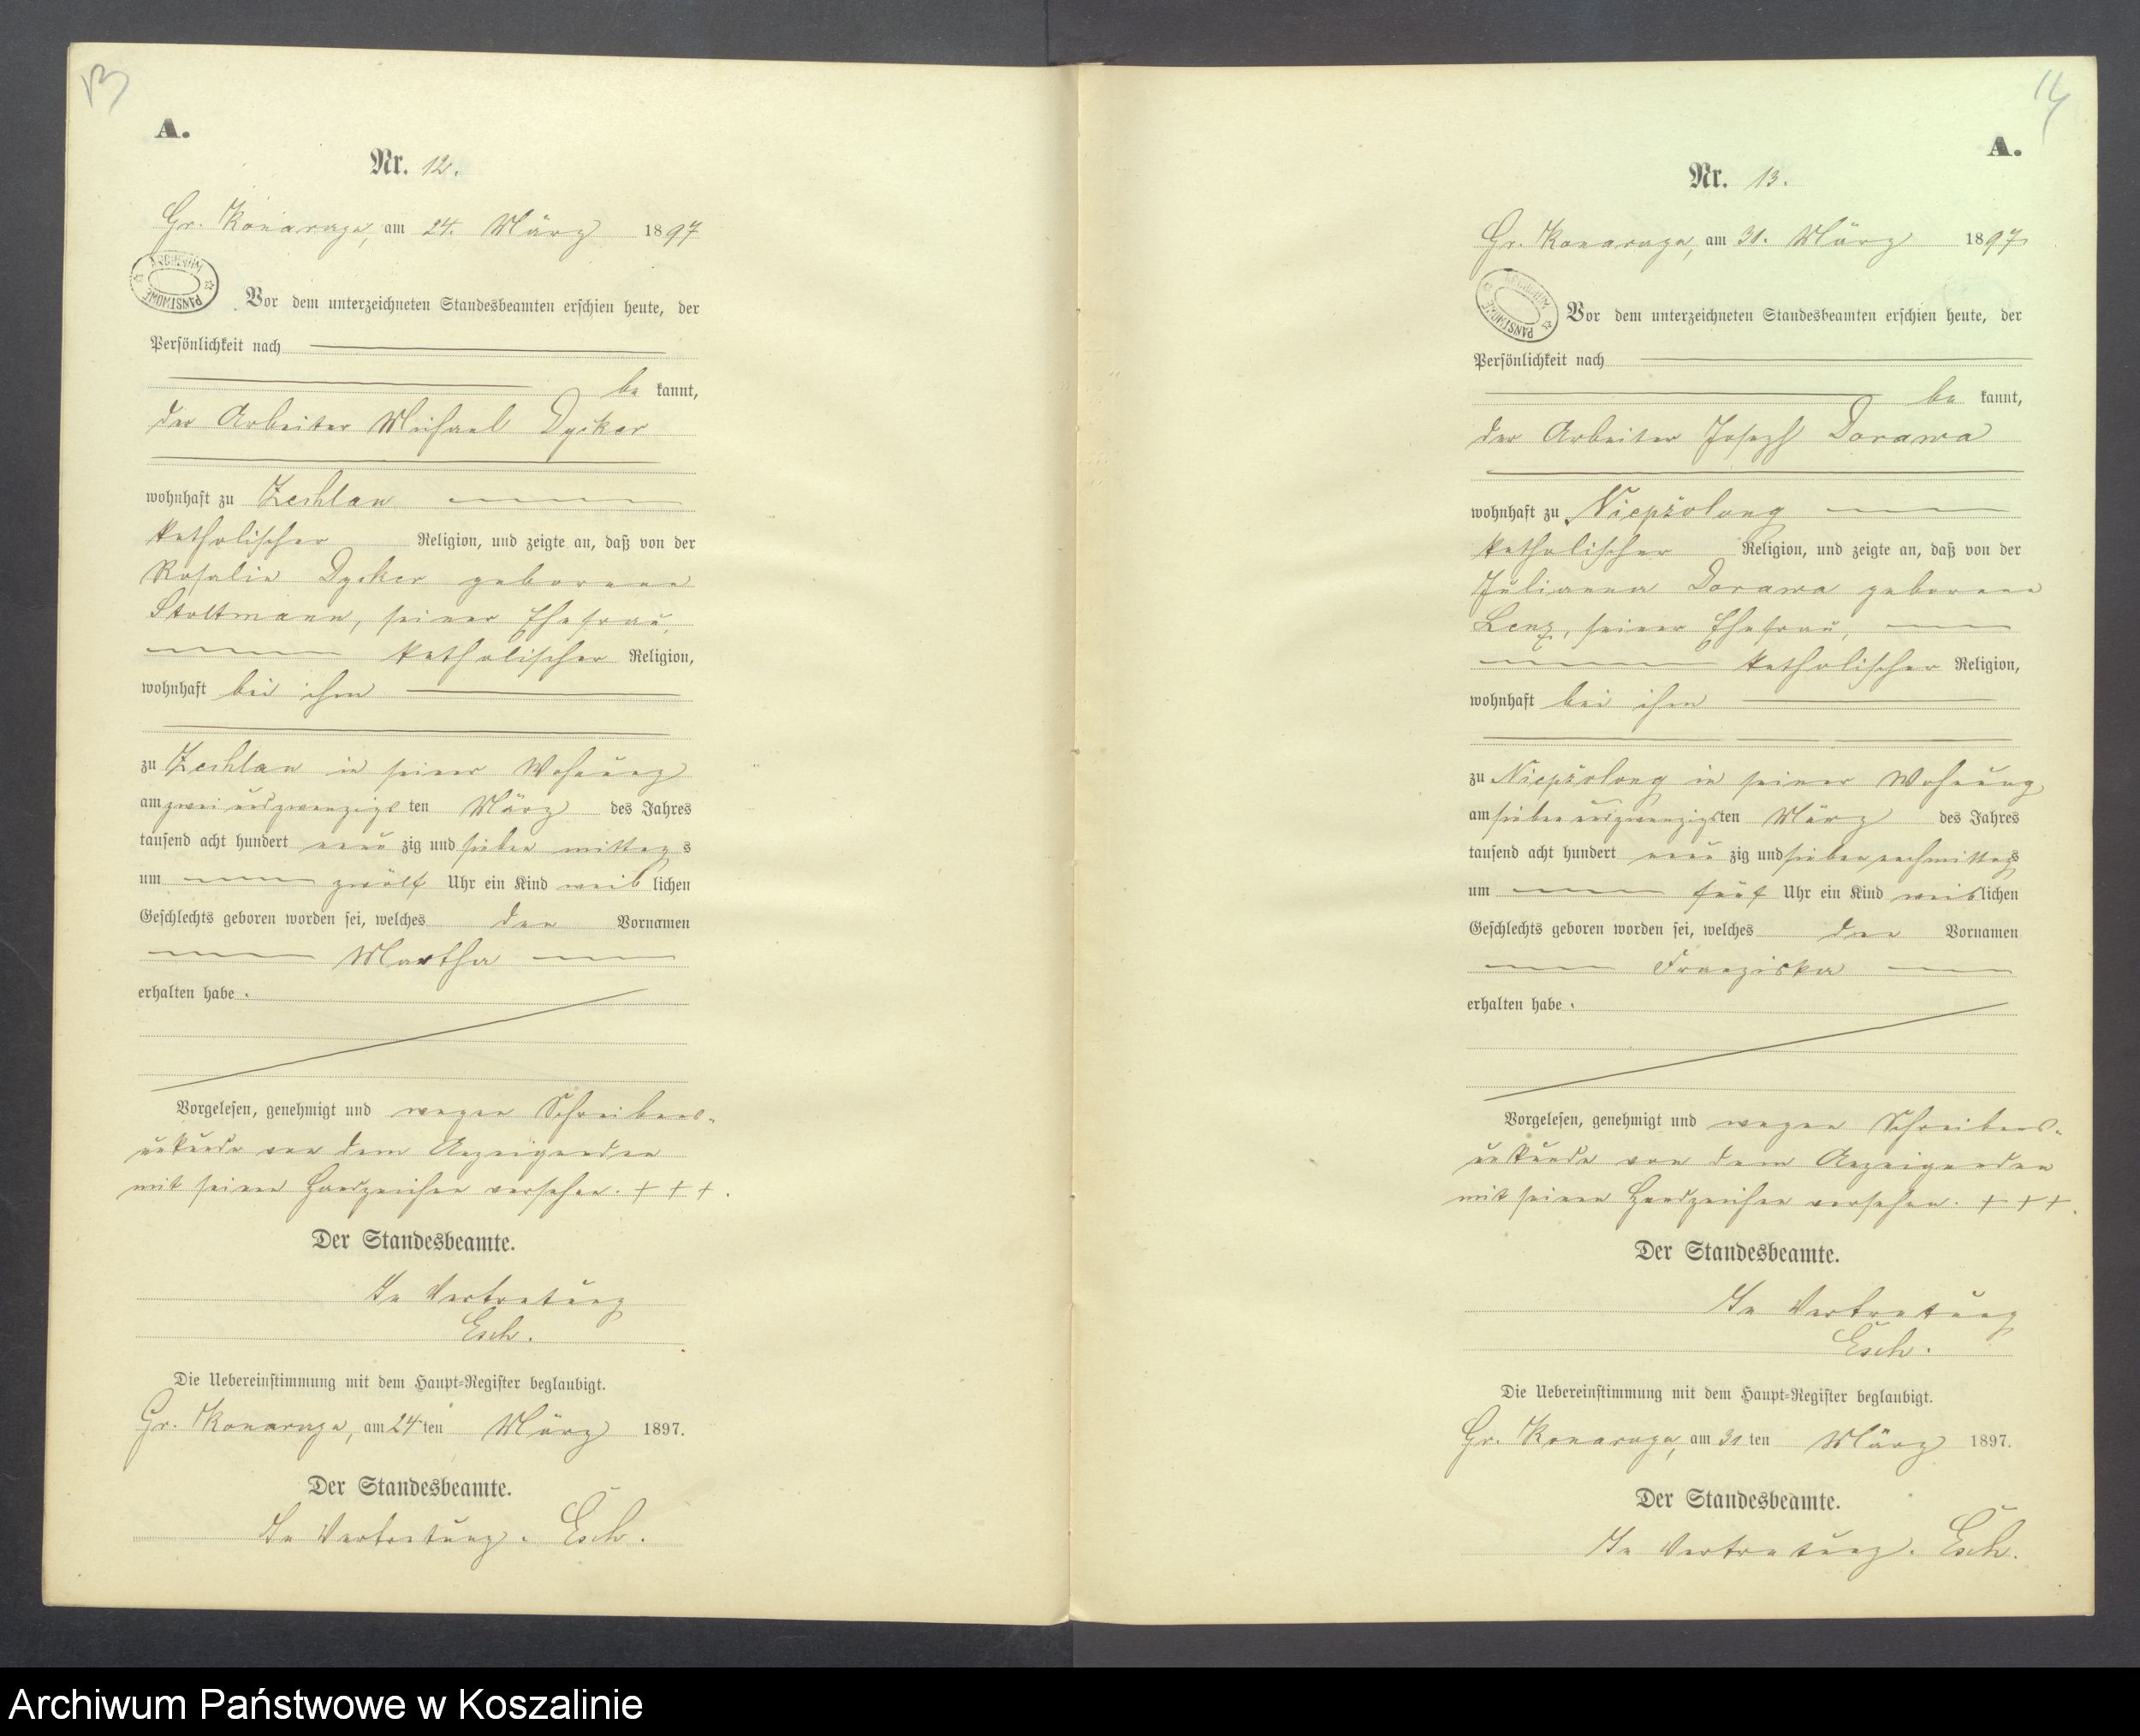 13
A.
Nr. 12.
Gr. Konarage, am 24. März 1897
ARCHIWUM PAŃSTWOWE
Vor dem unterzeichneten Standesbeamten erschien heute, der
Persönlichkeit nach
be kannt,
der Arbeiter Michael Dycker
wohnhaft zu Zechlau
katholischer Religion, und zeigte an, daß von der
Rosalie Dycker geborene
Stoltmann, seiner Ehefrau,
katholischer Religion,
wohnhaft bei ihm
zu Zechlau in seiner Wohnung
am zwei und zwanzigsten März des Jahres
tausend acht hundert neun zig und sieben mittags
um zwölf Uhr ein Kind weib lichen
Geschlechts geboren worden sei, welches den Vornamen
Martha
erhalten habe.
Vorgelesen, genehmigt und wegen Schreibens-
unkunde von dem Anzeigenden
mit seinen Handzeichen versehen. + + +.
Der Standesbeamte.
In Vertretung
Esch.
Die Uebereinstimmung mit dem Haupt-Register beglaubigt.
Gr. Konarage, am 24ten März 1897.
Der Standesbeamte.
In Vertretung. Esch.
14
A.
Nr. 13.
Gr. Konarage, am 31. März 1897
ARCHIWUM PAŃSTWOWE
Vor dem unterzeichneten Standesbeamten erschien heute, der
Persönlichkeit nach
be kannt,
der Arbeiter Joseph Dorawa
wohnhaft zu Niepszolong
katholischer Religion, und zeigte an, daß von der
Julianna Dorawa geborene
Lenz, seiner Ehefrau,
katholischer Religion,
wohnhaft bei ihm
zu Niepszolong in seiner Wohnung
am sieben und zwanzigsten März des Jahres
tausend acht hundert neun zig und sieben nachmittags
um fünf Uhr ein Kind weiblichen
Geschlechts geboren worden sei, welches den Vornamen
Franziska
erhalten habe.
Vorgelesen, genehmigt und wegen Schreibens-
unkunde von dem Anzeigenden
mit seinen Handzeichen versehen. + + +.
Der Standesbeamte.
In Vertretung
Esch.
Die Uebereinstimmung mit dem Haupt-Register beglaubigt.
Gr. Konarage, am 31 ten März 1897.
Der Standesbeamte.
In Vertretung. Esch.
Archiwum Państwowe w Koszalinie